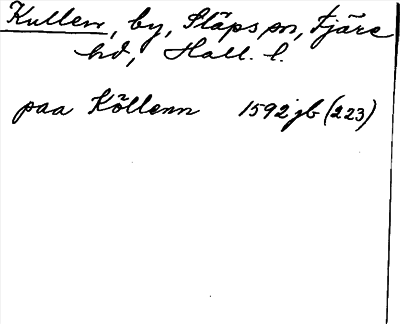 Kullen, by, Släps sn, Fjäre
hd, Hall. l.
paa Köllenn 1592 jb (223)